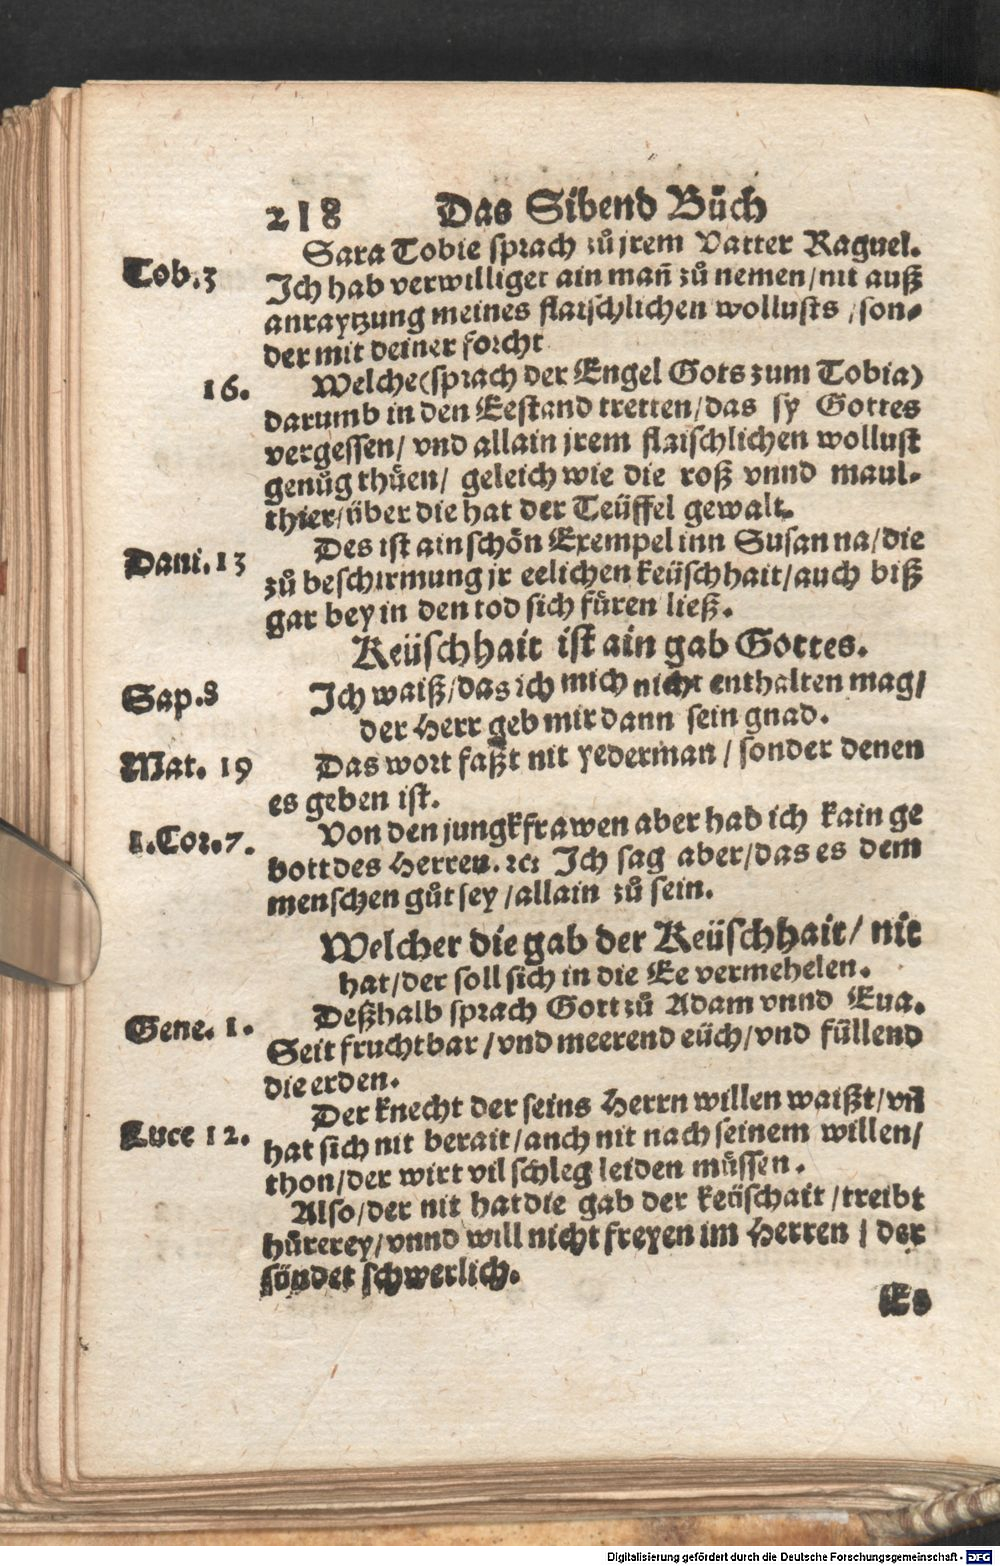 218 Das Sibend Bůch
Sara Tobie sprach zů jrem Vatter Raguel.
Tob.3 Ich hab verwilliget ain mañ zů nemen/nit auß
anraytzung meines flaischlichen wollusts /son⸗
der mit deiner forcht
16. Welche(sprach der Engel Gots zum Tobia)
darumb in den Eestand tretten/das sy Gottes
vergessen/ vnd allain jrem flaischlichen wollust
genůg thůen/ geleich wie die roß vnnd maul⸗
thier/über die hat der Teüffel gewalt.
Dani.13 Des ist ain schön Exempel inn Susanna/die
zů beschirmung jr eelichen keüschhait/auch biß
gar bey in den tod sich füren ließ.
Keüschhait ist ain gab Gottes.
Sap.8 Ich waiß/das ich mich nicht enthalten mag/
der Herr geb mir dann sein gnad.
Mat. 19 Das wort faßt nit yederman / sonder denen
es geben ist.
1.Cor.7. Von den jungkfrawen aber hab ich kain ge
bott des Herren. ꝛc Ich sag aber/das es dem
menschen gůt sey /allain zů sein.
Welcher die gab der Keüschhait/ nit
hat/der soll sich in die Ee vermehelen.
Deßhalb sprach Gott zů Adam vnnd Eua.
Gene. 1. Seit fruchtbar /vnd meerend eüch/vnd füllend
die erden.
Der knecht der seins Herrn willen waißt/vñ
Luce 12. hat sich nit berait/auch nit nach seinem willen/
thon/der wirt vil schleg leiden müssen.
Also/der nit hat die gab der keüschait /treibt
hůrerey/vnnd will nicht freyen im Herren / der
sündet schwerlich.
Es
Digitalisierung gefördert durch die Deutsche Forschungsgemeinschaft - DFG